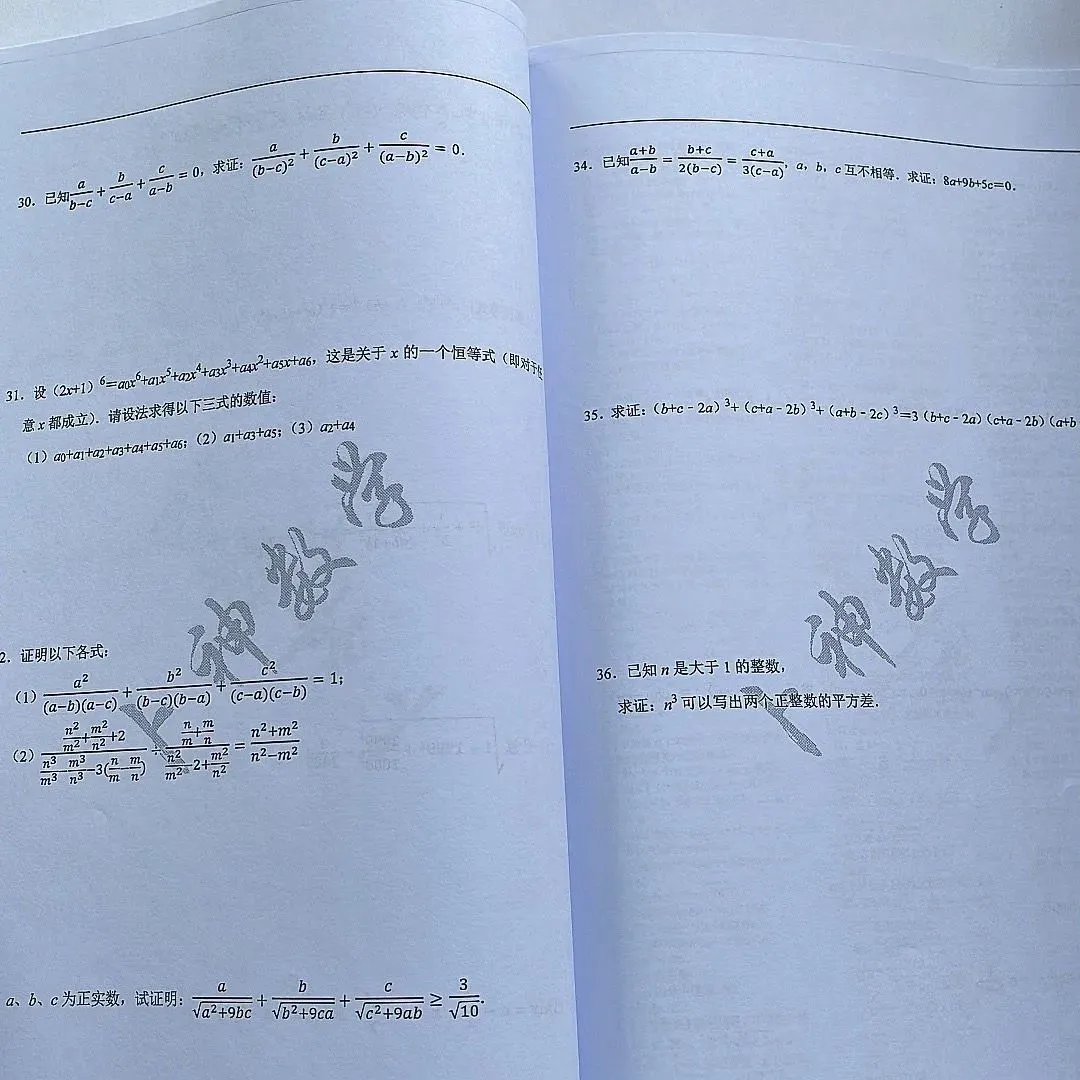 30. 已知a/(b−c)+b/(c−a)+c/(a−b)=0, 求证: a/(b−c)²+b/(c−a)²+c/(a−b)²=0.
31. 设（2x+1）⁶=a₀x⁶+a₁x⁵+a₂x⁴+a₃x³+a₄x²+a₅x+a₆, 这是关于 x 的一个恒等式（即对于
意 x 都成立）. 请设法求得以下三式的数值:
（1）a₀+a₁+a₂+a₃+a₄+a₅+a₆;（2）a₁+a₃+a₅;（3）a₂+a₄
2. 证明以下各式:
（1）a²/((a−b)(a−c))+b²/((b−c)(b−a))+c²/((c−a)(c−b))=1;
（2）(n²/m²+m²/n²+2)/(n³/m³−m³/n³−3(n/m−m/n))÷(n/m+m/n)/(n²/m²−2+m²/n²)=(n²+m²)/(n²−m²)
a、b、c 为正实数, 试证明: a/√(a²+9bc)+b/√(b²+9ca)+c/√(c²+9ab)≥3/√10.
34. 已知(a+b)/(a−b)=(b+c)/(2(b−c))=(c+a)/(3(c−a)), a, b, c 互不相等. 求证: 8a+9b+5c=0.
35. 求证:（b+c﹣2a）³+（c+a﹣2b）³+（a+b﹣2c）³=3（b+c﹣2a）（c+a﹣2b）（a+b
36. 已知 n 是大于 1 的整数,
求证: n³ 可以写出两个正整数的平方差.
神数学
神数学